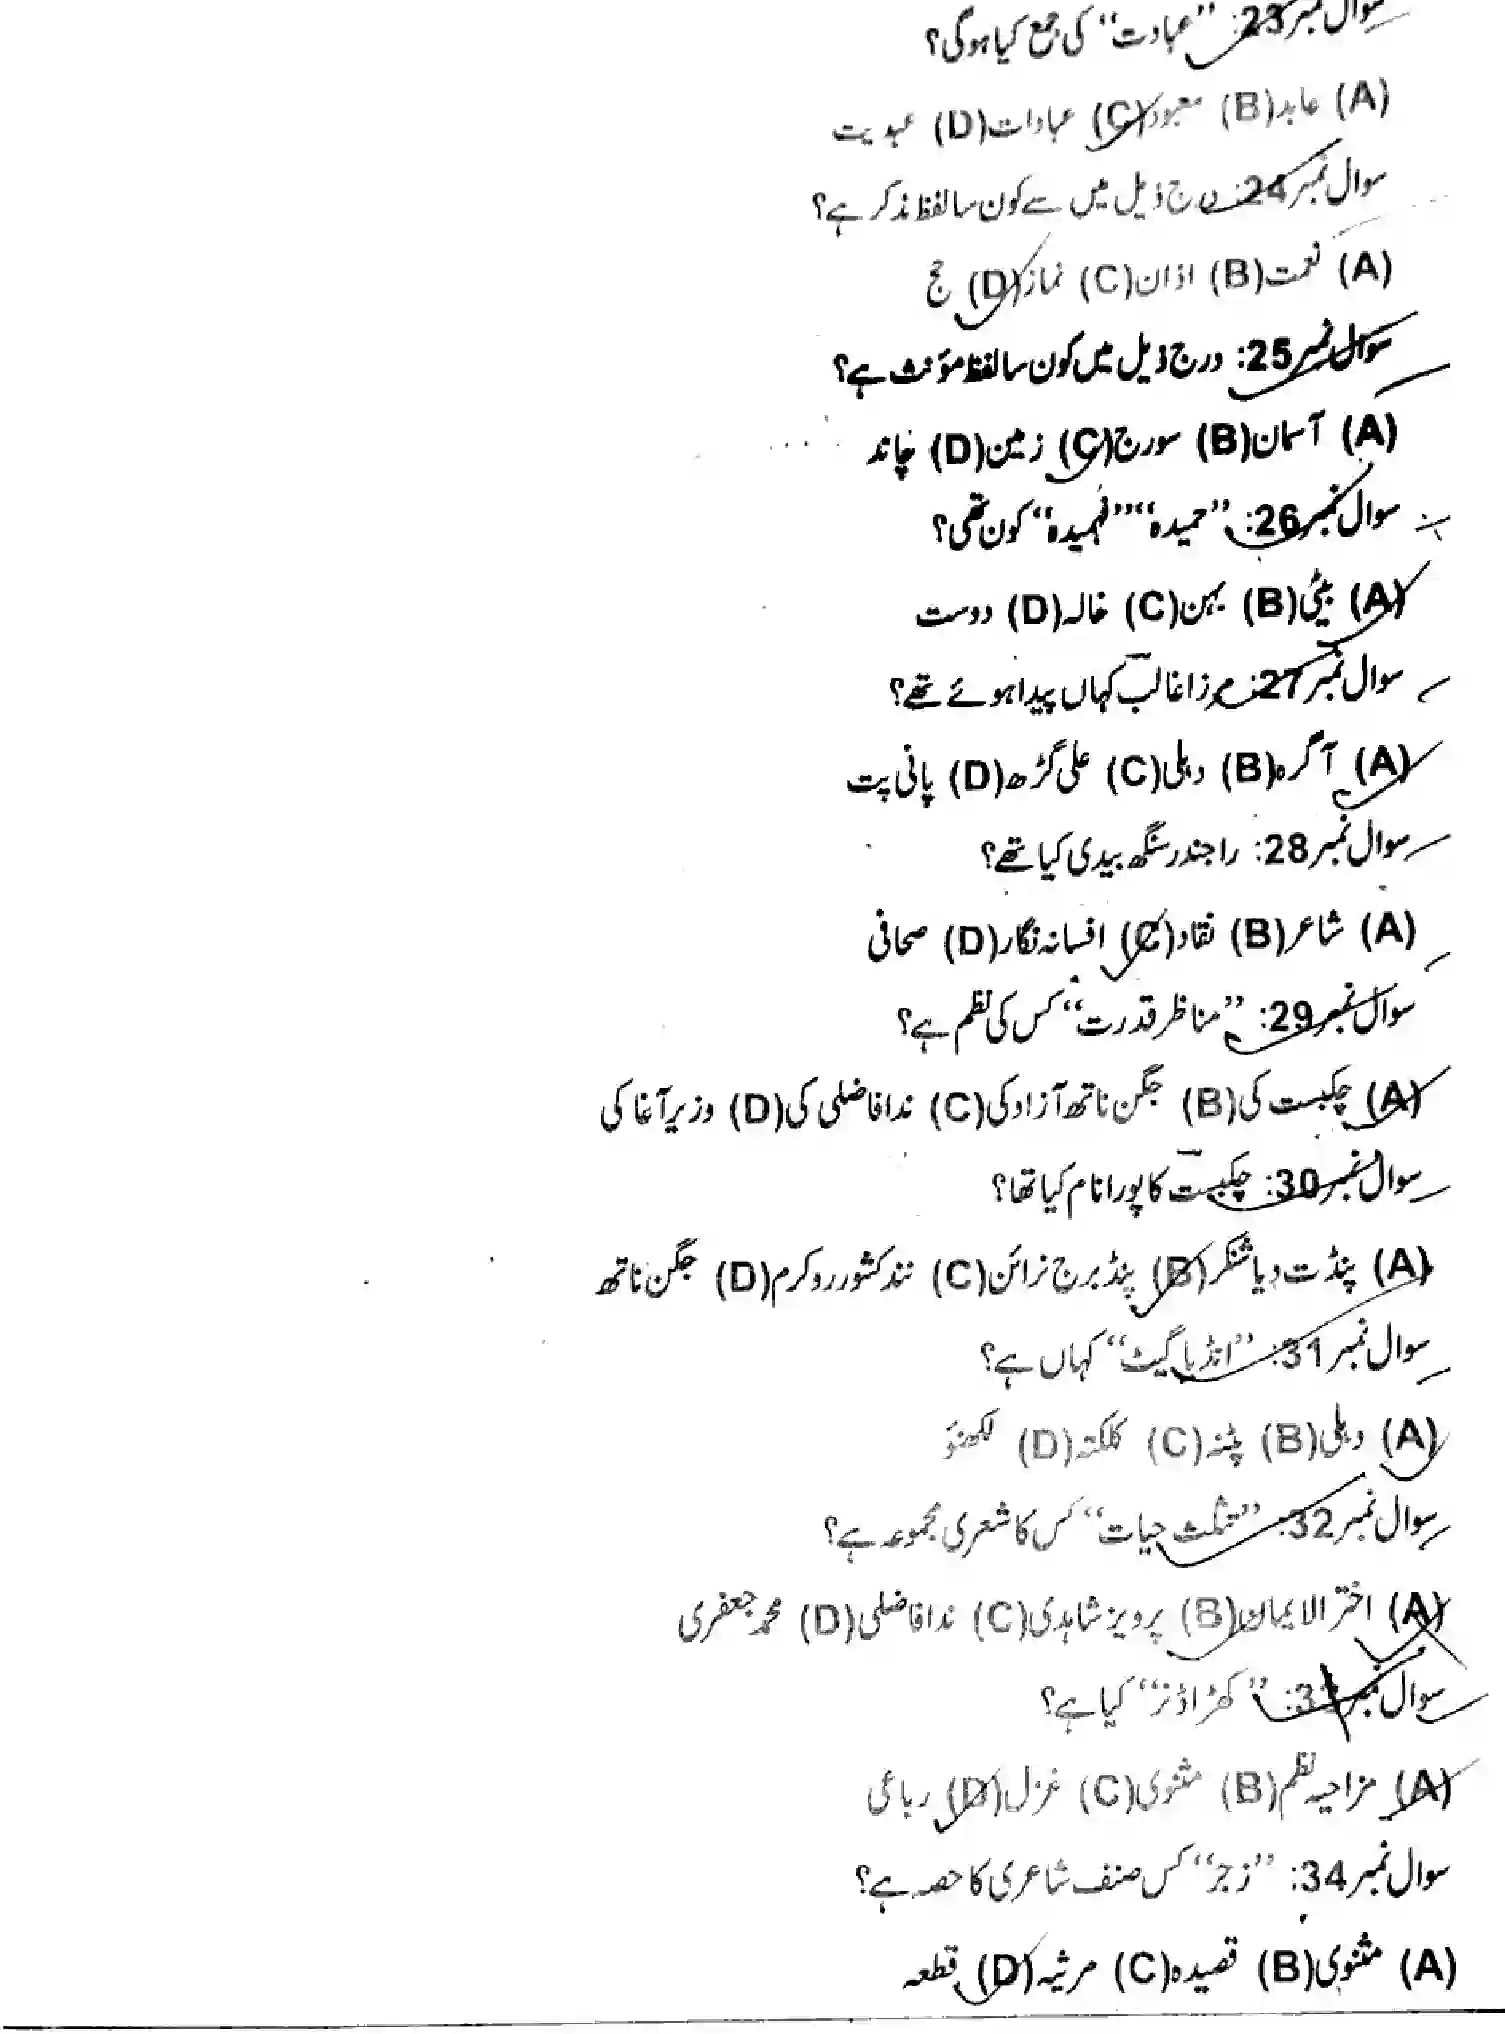 سوال نمبر23: ”عبادت“ کی جمع کیا ہوگی؟
(A) عابد(B) معبود(C) عبادات(D) عبدیت
سوال نمبر24: درج ذیل میں سے کون سا لفظ مذکر ہے؟
(A) نعمت(B) اذان(C) نماز(D) حج
سوال نمبر25: درج ذیل میں کون سا لفظ مؤنث ہے؟
(A) آسمان(B) سورج(C) زمین(D) چاند
سوال نمبر26: ”حمیدہ“ ”فہمیدہ“ کون تھی؟
(A) بیٹی(B) بہن(C) خالہ(D) دوست
سوال نمبر27: مرزا غالب کہاں پیدا ہوئے تھے؟
(A) آگرہ(B) دہلی(C) علی گڑھ(D) پانی پت
سوال نمبر28: راجندر سنگھ بیدی کیا تھے؟
(A) شاعر(B) نقاد(C) افسانہ نگار(D) صحافی
سوال نمبر29: ”مناظر قدرت“ کس کی نظم ہے؟
(A) چکبست کی(B) جگن ناتھ آزاد کی(C) ندا فاضلی کی(D) وزیر آغا کی
سوال نمبر30: چکبست کا پورا نام کیا تھا؟
(A) پنڈت دیا شنکر(B) پنڈ برج نرائن(C) نند کشور روکرم(D) جگن ناتھ
سوال نمبر31: ”انڈیا گیٹ“ کہاں ہے؟
(A) دہلی(B) پٹنہ(C) کلکتہ(D) لکھنؤ
سوال نمبر32: ”تثلیث حیات“ کس کا شعری مجموعہ ہے؟
(A) اختر الایمان(B) پرویز شاہدی(C) ندا فاضلی(D) محمد جعفری
سوال نمبر33: ”کھڑا ڈنر“ کیا ہے؟
(A) مزاحیہ نظم(B) مثنوی(C) غزل(D) رباعی
سوال نمبر34: ”زجر“ کس صنف شاعری کا حصہ ہے؟
(A) مثنوی(B) قصیدہ(C) مرثیہ(D) قطعہ